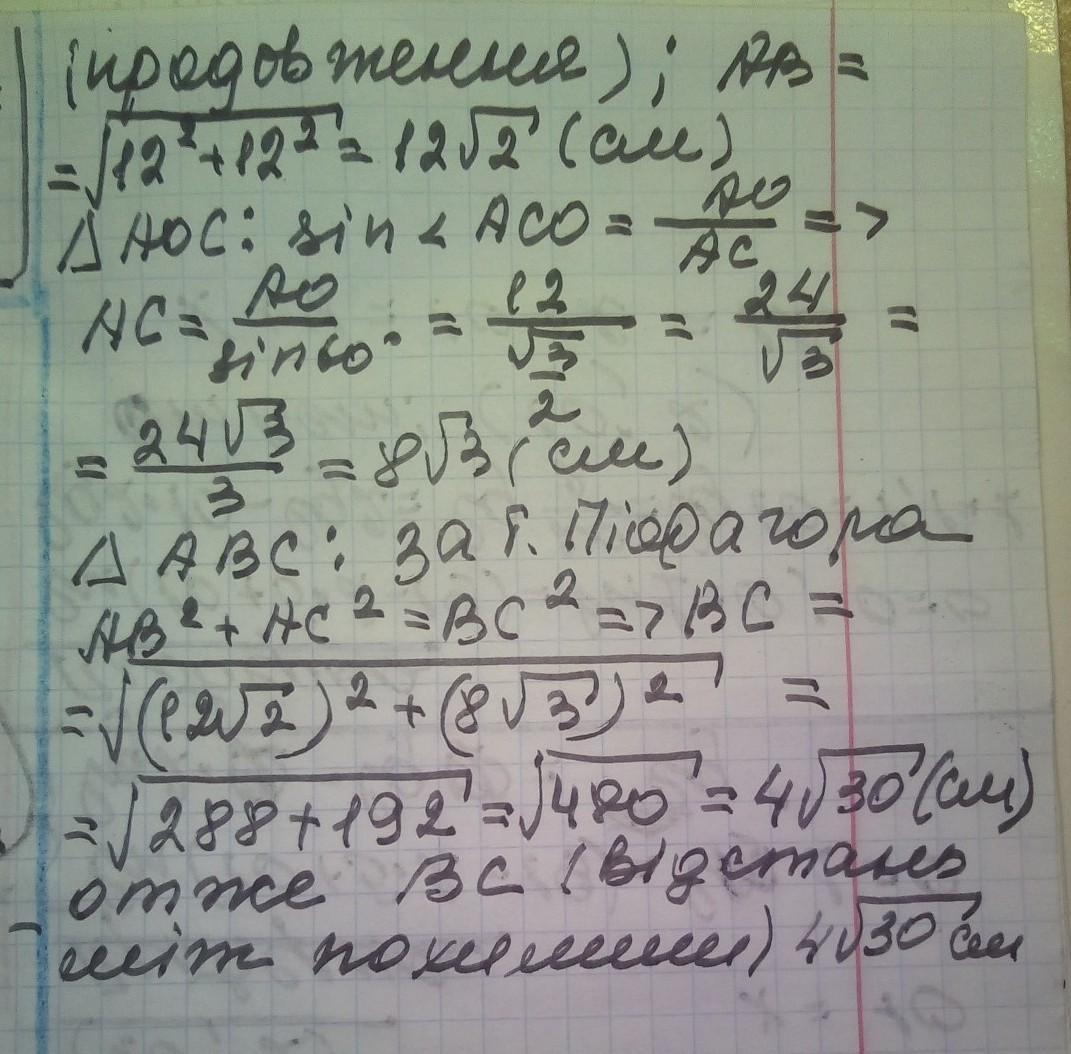 (продовження); AB =
= √(12² + 12²) = 12√2 (см)
△ AOC: sin < ACO = AO/AC =>
AC = AO/sin60° = 12/(√3/2) = 24/√3 =
= 24√3/3 = 8√3 (см)
△ ABC: за т. Піфагора
AB² + AC² = BC² => BC =
= √((12√2)² + (8√3)²) =
= √(288+192) = √480 = 4√30 (см)
отже BC (відстань
між похилими) 4√30 см